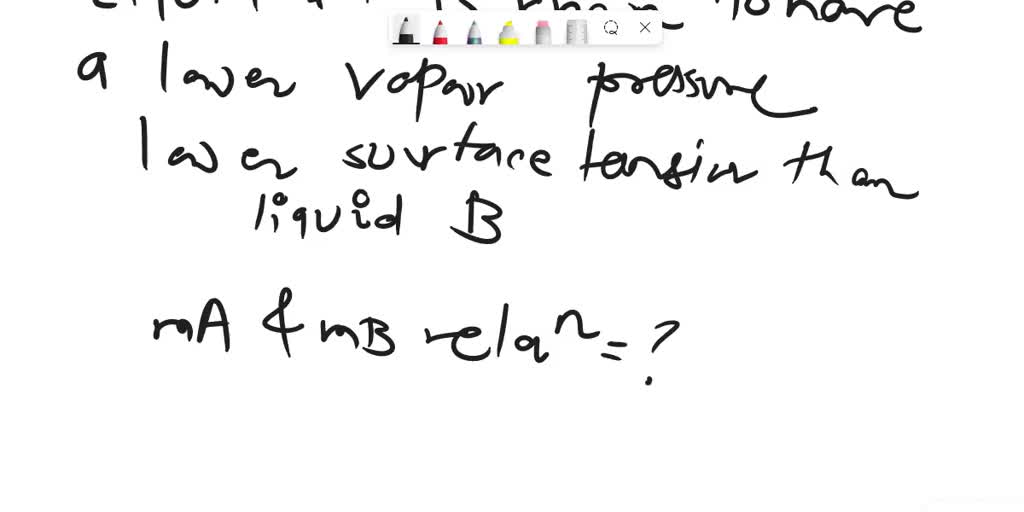 to have
a lower vapour pressure
lower surface tension than
liquid B
mA & mB relaⁿ = ?